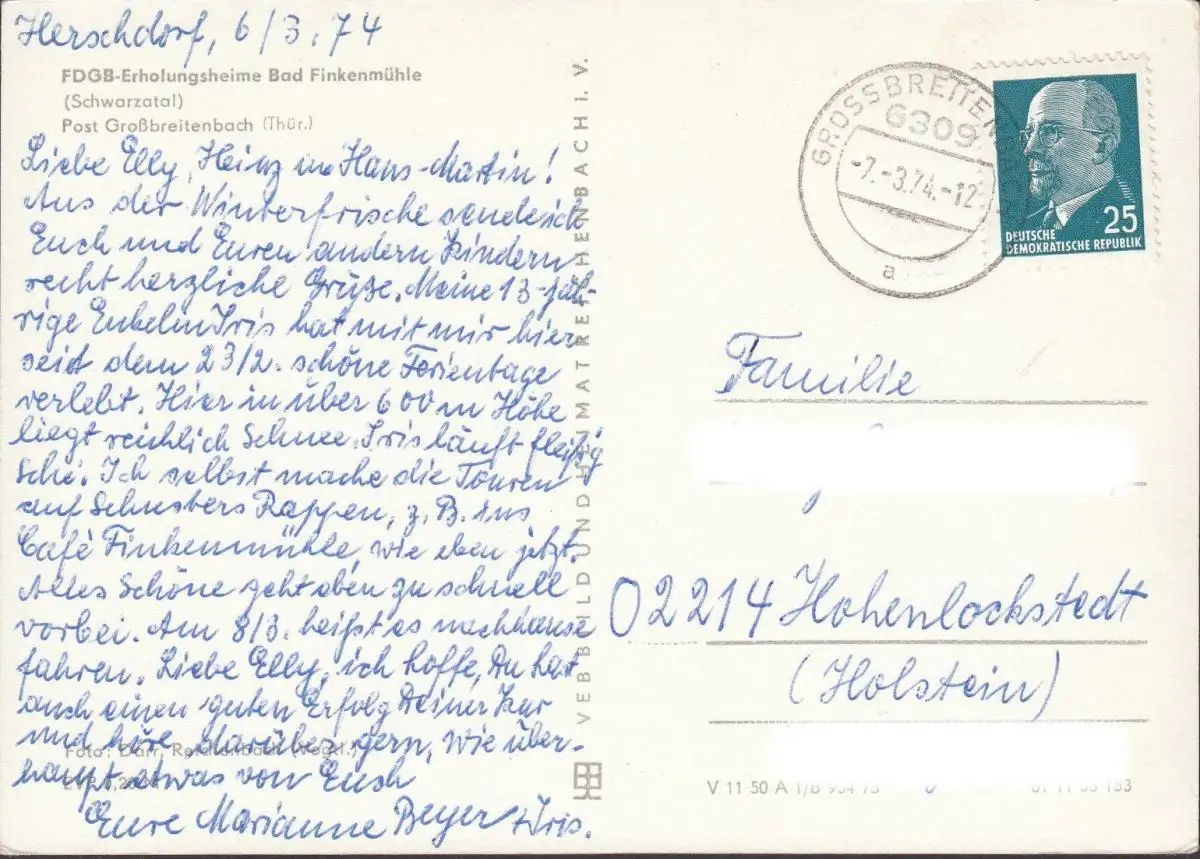 Herschdorf, 6/3.74
FDGB-Erholungsheime Bad Finkenmühle
(Schwarzatal)
Post Großbreitenbach (Thür.)
Liebe Elly, Heinz u Hans-Martin!
Aus der Winterfrische sende ich
Euch und Euren andern Kindern
recht herzliche Grüße. Meine 13-jäh-
rige Enkelin Iris hat mit mir hier
seit dem 23/2. schöne Ferientage
verlebt. Hier in über 600 m Höhe
liegt reichlich Schnee. Iris läuft fleißig
Schi. Ich selbst mache die Touren
auf Schusters Rappen, z. B. ins
Café Finkenmühle, wie eben jetzt.
Alles Schöne geht eben zu schnell
vorbei. Am 8/3. heißt es nachhause
fahren. Liebe Elly, ich hoffe, Du hat
auch einen guten Erfolg Deiner Kur
und höre darüber gern, wie über-
haupt etwas von Euch
Eure Marianne Beyer + Iris.
Foto: Darr, Reichenbach (Vogtl.)
VEB BILD UND HEIMAT REICHENBACH I. V.
GROSSBREITEN
6309
-7.-3.74.-12
a
25
DEUTSCHE
DEMOKRATISCHE REPUBLIK
Familie
02214 Hohenlockstedt
(Holstein)
V 11 50 A 1/B 954/73
153